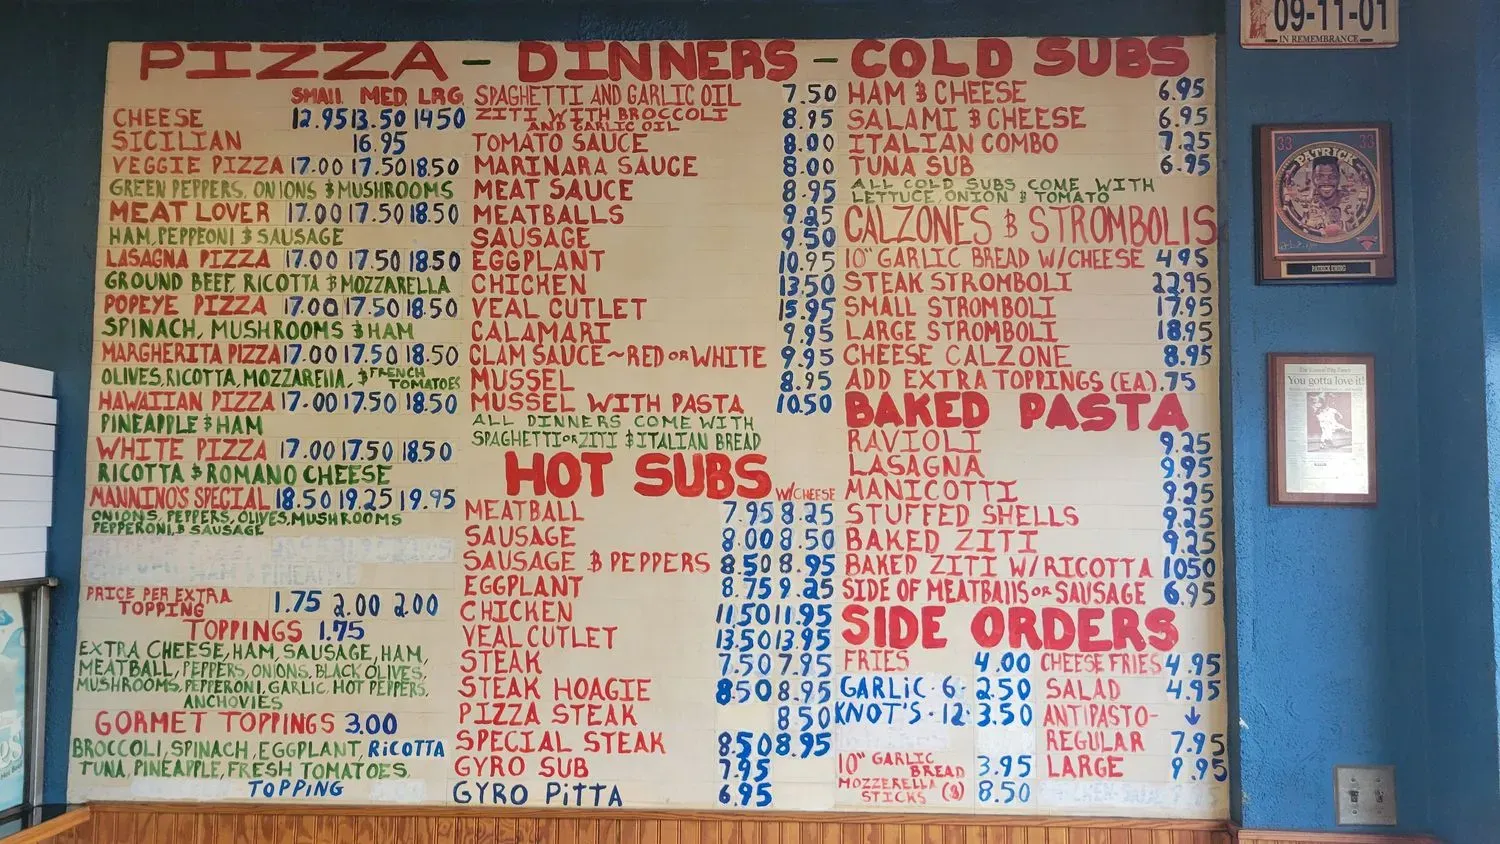 PIZZA - DINNERS - COLD SUBS
SMALL MED LRG
CHEESE 12.95 13.50 1450
SICILIAN 16.95
VEGGIE PIZZA 17.00 17.50 18.50
GREEN PEPPERS, ONIONS & MUSHROOMS
MEAT LOVER 17.00 17.50 18.50
HAM, PEPPEONI & SAUSAGE
LASAGNA PIZZA 17.00 17.50 18.50
GROUND BEEF, RICOTTA & MOZZARELLA
POPEYE PIZZA 17.00 17.50 18.50
SPINACH, MUSHROOMS & HAM
MARGHERITA PIZZA 17.00 17.50 18.50
OLIVES, RICOTTA, MOZZARELLA, & FRENCH TOMATOES
HAWAIIAN PIZZA 17.00 17.50 18.50
PINEAPPLE & HAM
WHITE PIZZA 17.00 17.50 18.50
RICOTTA & ROMANO CHEESE
MANNINO'S SPECIAL 18.50 19.25 19.95
ONIONS, PEPPERS, OLIVES, MUSHROOMS
PEPPERONI, & SAUSAGE
PRICE PER EXTRA
TOPPING 1.75 2.00 2.00
TOPPINGS 1.75
EXTRA CHEESE, HAM, SAUSAGE, HAM,
MEATBALL, PEPPERS, ONIONS, BLACK OLIVES,
MUSHROOMS, PEPPERONI, GARLIC, HOT PEPPERS,
ANCHOVIES
GORMET TOPPINGS 3.00
BROCCOLI, SPINACH, EGGPLANT, RICOTTA
TUNA, PINEAPPLE, FRESH TOMATOES.
TOPPING
SPAGHETTI AND GARLIC OIL 7.50
ZITI WITH BROCCOLI 8.95
AND GARLIC OIL
TOMATO SAUCE 8.00
MARINARA SAUCE 8.00
MEAT SAUCE 8.95
MEATBALLS 9.25
SAUSAGE 9.50
EGGPLANT 10.95
CHICKEN 13.50
VEAL CUTLET 15.95
CALAMARI 9.95
CLAM SAUCE ~ RED OR WHITE 9.95
MUSSEL 8.95
MUSSEL WITH PASTA 10.50
ALL DINNERS COME WITH
SPAGHETTI OR ZITI & ITALIAN BREAD
HOT SUBS
W/CHEESE
MEATBALL 7.95 8.25
SAUSAGE 8.00 8.50
SAUSAGE & PEPPERS 8.50 8.95
EGGPLANT 8.75 9.25
CHICKEN 11.50 11.95
VEAL CUTLET 13.50 13.95
STEAK 7.50 7.95
STEAK HOAGIE 8.50 8.95
PIZZA STEAK 8.50
SPECIAL STEAK 8.50 8.95
GYRO SUB 7.95
GYRO PITTA 6.95
HAM & CHEESE 6.95
SALAMI & CHEESE 6.95
ITALIAN COMBO 7.25
TUNA SUB 6.95
ALL COLD SUBS COME WITH
LETTUCE, ONION & TOMATO
CALZONES & STROMBOLIS
10" GARLIC BREAD W/CHEESE 4.95
STEAK STROMBOLI 22.95
SMALL STROMBOLI 17.95
LARGE STROMBOLI 18.95
CHEESE CALZONE 8.95
ADD EXTRA TOPPINGS (EA) .75
BAKED PASTA
RAVIOLI 9.25
LASAGNA 9.95
MANICOTTI 9.25
STUFFED SHELLS 9.25
BAKED ZITI 9.25
BAKED ZITI W/RICOTTA 1050
SIDE OF MEATBALLS OR SAUSAGE 6.95
SIDE ORDERS
FRIES 4.00
GARLIC - 6 - 2.50
KNOT'S - 12 - 3.50
10" GARLIC
BREAD 3.95
MOZZERELLA
STICKS (8) 8.50
CHEESE FRIES 4.95
SALAD 4.95
ANTIPASTO- ↓
REGULAR 7.95
LARGE 9.95
09-11-01
IN REMEMBRANCE
33 33
PATRICK
PATRICK EWING
You gotta love it!